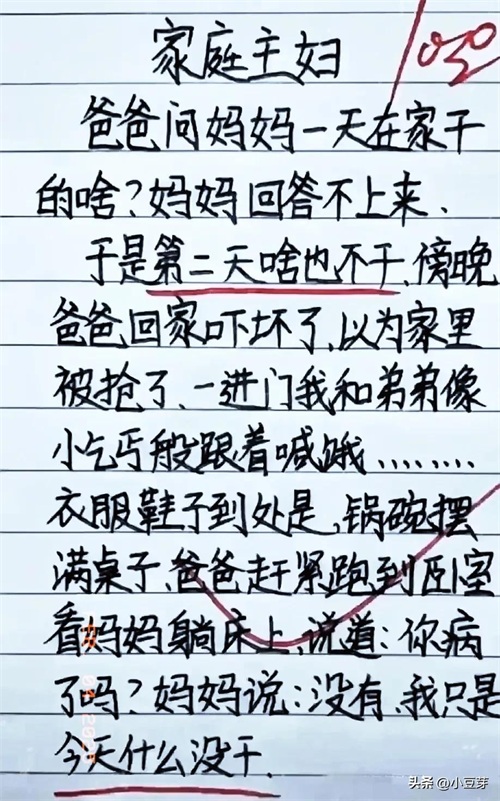 家庭主妇
100
爸爸问妈妈一天在家干
的啥?妈妈回答不上来、
于是第二天啥也不干、傍晚
爸爸回家吓坏了,以为家里
被抢了、一进门我和弟弟像
小乞丐般跟着喊饿………
衣服鞋子到处是,锅碗摆
满桌子、爸爸赶紧跑到卧室
看妈妈躺床上、说道:你病
了吗?妈妈说:没有、我只是
今天什么没干、
头条 @小豆芽